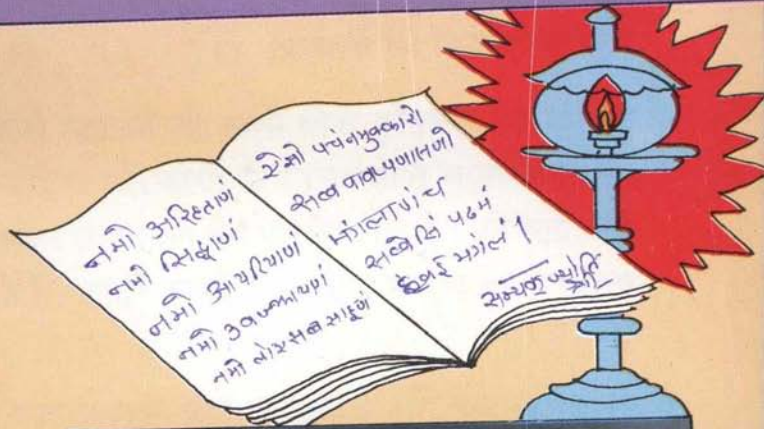 નમો અરિહતાણં
નમો સિદ્ધાણં
નમો આયરિયાણં
નમો ઉવજ્ઝાયાણં
નમો લોએ સબ્વ સાહૂણં
એસો પચંનમુક્કારો
સવ્વ પાવપ્પણાસણો
મંગલાણં ચ
સવ્વેસિં પઢમં
હવઈ મંગલં |
સમ્યક્ જ્યોતિ